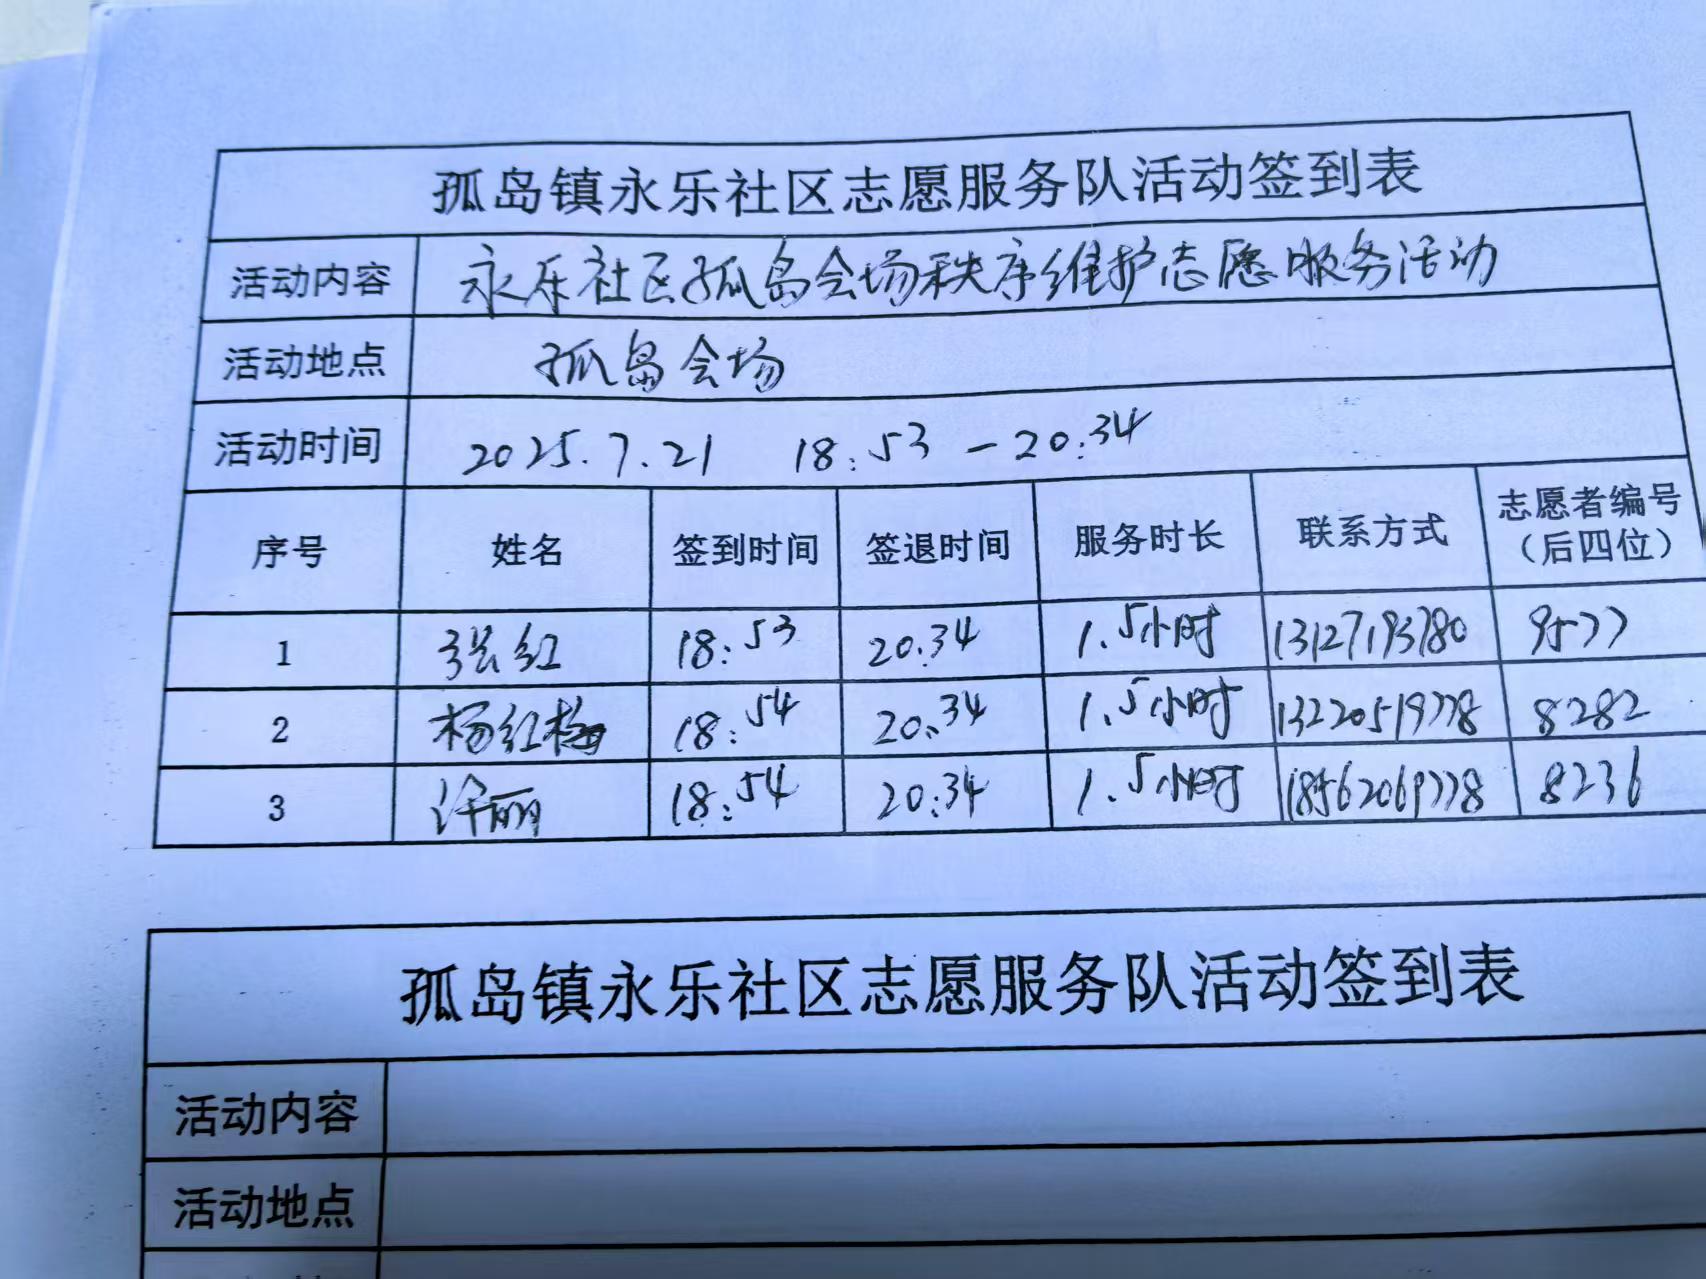 孤岛镇永乐社区志愿服务队活动签到表
活动内容 永乐社区孤岛会场秩序维护志愿服务活动
活动地点 孤岛会场
活动时间 2025.7.21 18:53-20:34
序号 姓名 签到时间 签退时间 服务时长 联系方式 志愿者编号（后四位）
1 张红 18:53 20:34 1.5小时 13127193780 9577
2 杨红梅 18:54 20:34 1.5小时 13220519778 8282
3 许丽 18:54 20:34 1.5小时 18562069778 8236
孤岛镇永乐社区志愿服务队活动签到表
活动内容
活动地点